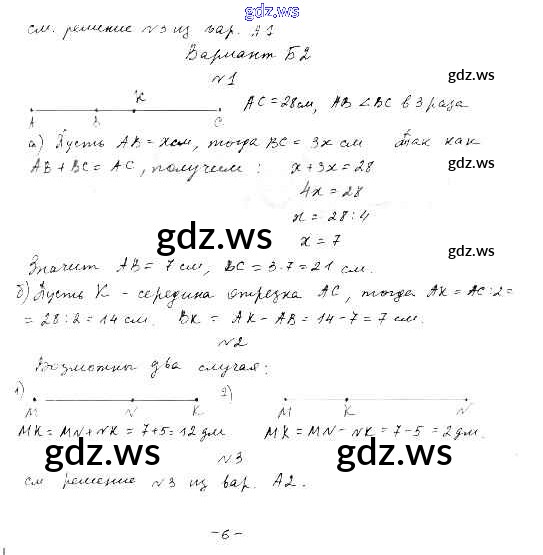 gdz.ws
см. решение №3 из вар. А1
Вариант Б2
gdz.ws
№1
K
A B C
AC = 28 см, AB < BC в 3 раза
gdz.ws
а) Пусть AB = x см, тогда BC = 3x см Так как
AB + BC = AC, получим : x + 3x = 28
4x = 28
x = 28 : 4
x = 7
gdz.ws
gdz.ws
Значит AB = 7 см, BC = 3·7 = 21 см.
б) Пусть K - середина отрезка AC, тогда AK = AC : 2 =
= 28 : 2 = 14 см. BK = AK - AB = 14 - 7 = 7 см.
№2
Возможны два случая:
1) M N K 2) M K N
MK = MN + NK = 7 + 5 = 12 дм MK = MN - NK = 7 - 5 = 2 дм.
gdz.ws gdz.ws
№3
см решение №3 из вар. А2.
- 6 -
gdz.ws